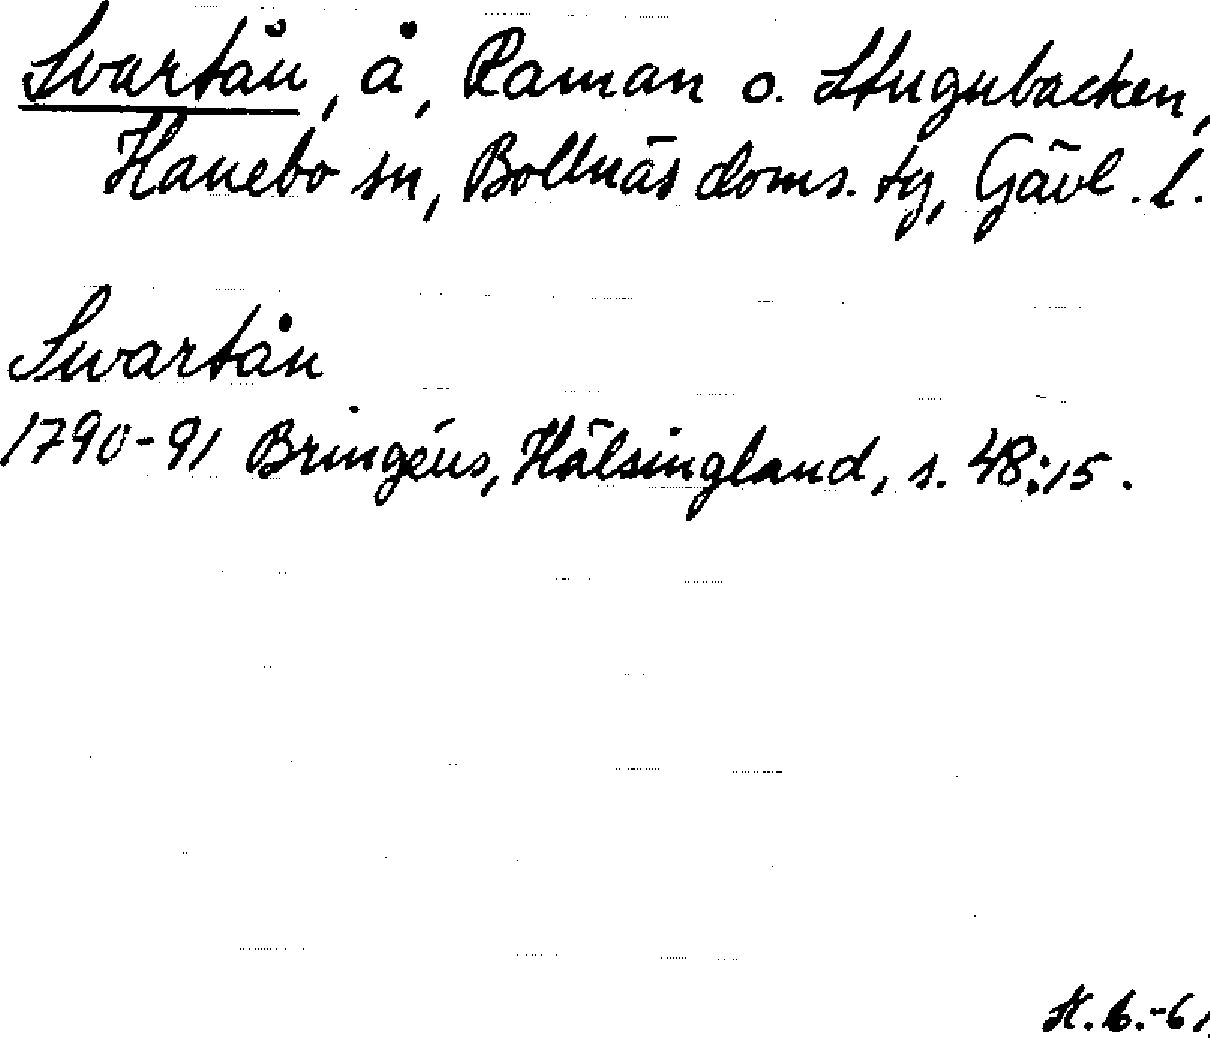 Svartån, å, Raman o. Stugubacken,
Hanebo sn, Bollnäs doms. tg, Gävl. l.
Swartån
1790-91 Bringéus, Hälsingland, s. 48:15.